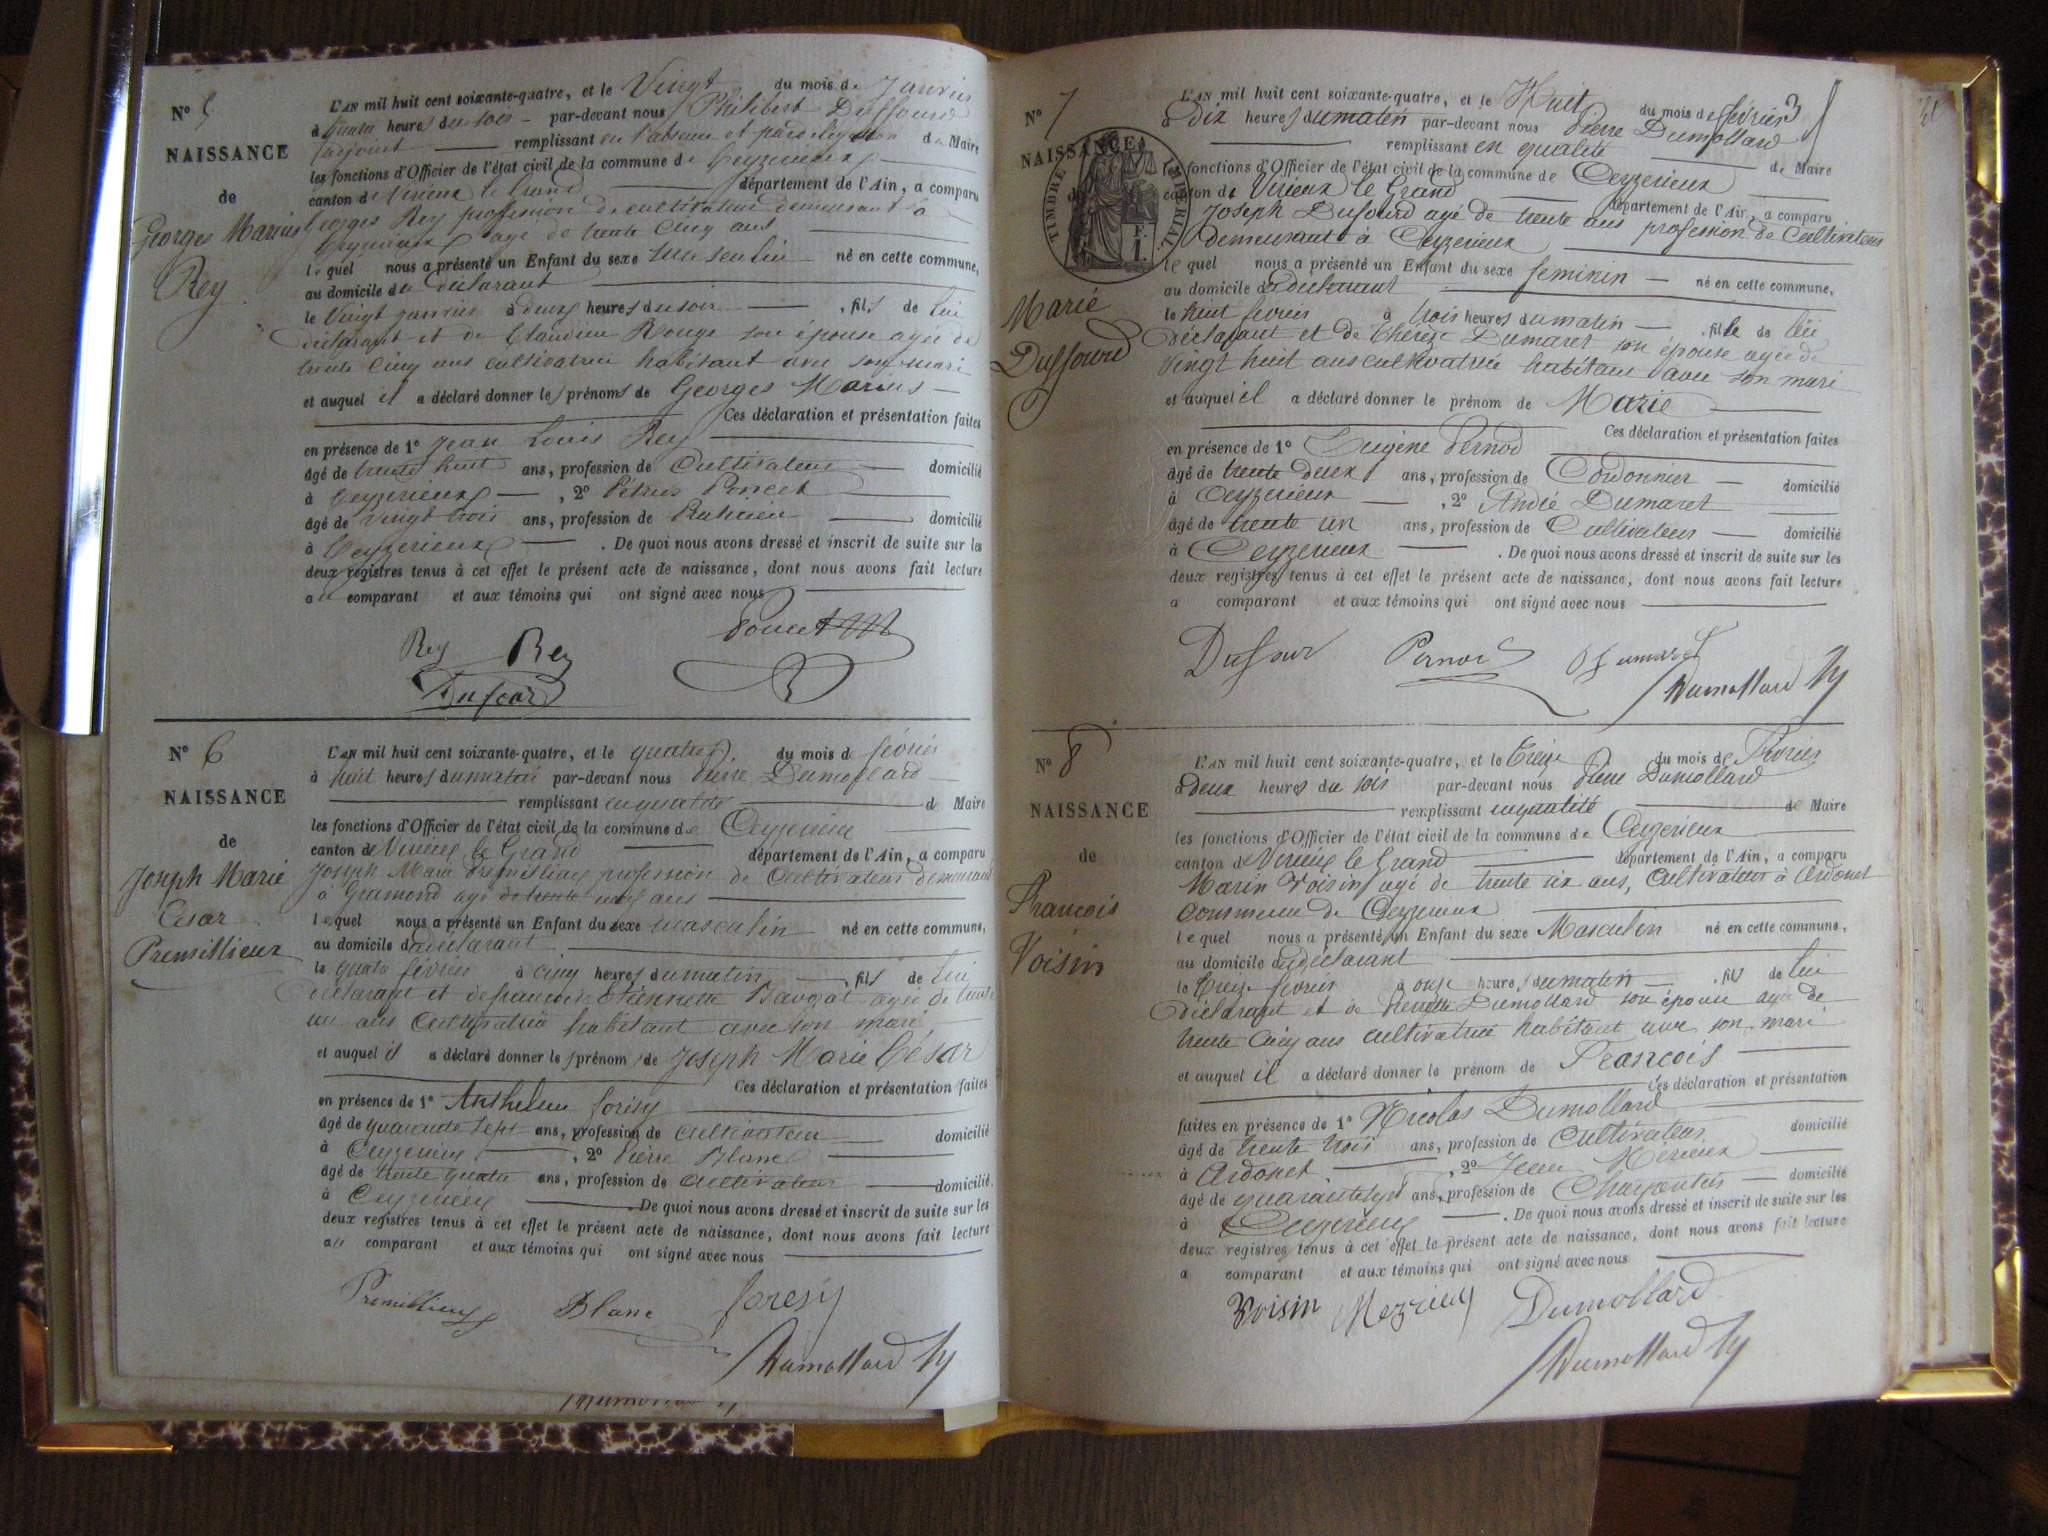 N° 5
NAISSANCE
de
Georges Marius
Rey
L'AN mil huit cent soixante-quatre, et le Vingt du mois de Janvier
à quatre heures du soir par-devant nous Philibert Duffourd
adjoint remplissant en l'absence et par délégation de Maire
les fonctions d'Officier de l'état civil de la commune de Ceyzerieux
canton de Virieux le Grand département de l'Ain, a comparu
Georges Rey profession de cultivateur demeurant à
Ceyzerieux agé de trente cinq ans
lequel nous a présenté un Enfant du sexe masculin né en cette commune,
au domicile du déclarant
le Vingt janvier à deux heures du soir , fils de lui
déclarant et de Claudine Rouge son épouse agée de
trente cinq ans cultivatrice habitant avec son mari
et auquel il a déclaré donner les prénoms de Georges Marius
Ces déclaration et présentation faites
en présence de 1° Jean Louis Rey
âgé de trente huit ans, profession de Cultivateur domicilié
à Ceyzerieux , 2° Petrus Poncet
âgé de vingt trois ans, profession de domicilié
à Ceyzerieux . De quoi nous avons dressé et inscrit de suite sur les
deux registres tenus à cet effet le présent acte de naissance, dont nous avons fait lecture
au comparant et aux témoins qui ont signé avec nous
Rey Rey Poncet
Dufour
N° 6
NAISSANCE
de
Joseph Marie
César
Premillieux
L'AN mil huit cent soixante-quatre, et le quatre du mois de février
à huit heures du matin par-devant nous Pierre Dumollard
remplissant en qualité de Maire
les fonctions d'Officier de l'état civil de la commune de Ceyzerieux
canton de Virieux le Grand département de l'Ain, a comparu
Joseph Marie Premillieux profession de Cultivateur demeurant
à Gramond agé de trente ans
lequel nous a présenté un Enfant du sexe masculin né en cette commune,
au domicile du déclarant
le quatre février à cinq heures du matin , fils de lui
déclarant et de françoise Etiennette agée de trente
un ans Cultivatrice habitant avec son mari
et auquel il a déclaré donner les prénoms de Joseph Marie César
Ces déclaration et présentation faites
en présence de 1° Anthelme forisy
âgé de quarante sept ans, profession de cultivateur domicilié
à Ceyzerieux , 2° Pierre Blanc
âgé de trente quatre ans, profession de cultivateur domicilié
à Ceyzerieux . De quoi nous avons dressé et inscrit de suite sur les
deux registres tenus à cet effet le présent acte de naissance, dont nous avons fait lecture
au comparant et aux témoins qui ont signé avec nous
Premillieux Blanc foresy
Dumollard
N° 7
NAISSANCE
de
TIMBRE IMPÉRIAL
Marie
Duffourd
L'AN mil huit cent soixante-quatre, et le Huit du mois de février 3
à Dix heures du matin par-devant nous Pierre Dumollard
remplissant en qualité de Maire
les fonctions d'Officier de l'état civil de la commune de Ceyzerieux
canton de Virieux le Grand département de l'Ain, a comparu
Joseph Dufourd agé de trente ans profession de Cultivateur
demeurant à Ceyzerieux
lequel nous a présenté un Enfant du sexe feminin né en cette commune,
au domicile du déclarant
le huit fevrier à trois heures du matin , fille de lui
déclarant et de Thérèze Dumaret son épouse agée de
vingt huit ans cultivatrice habitant avec son mari
et auquel il a déclaré donner le prénom de Marie
Ces déclaration et présentation faites
en présence de 1° Eugène Pernod
âgé de trente deux ans, profession de Cordonnier domicilié
à Ceyzerieux , 2° André Dumaret
âgé de trente un ans, profession de Cultivateur domicilié
à Ceyzerieux . De quoi nous avons dressé et inscrit de suite sur les
deux registres tenus à cet effet le présent acte de naissance, dont nous avons fait lecture
a comparant et aux témoins qui ont signé avec nous
Dufour Pernod Dumaret
Dumollard
N° 8
NAISSANCE
de
François
Voisin
L'AN mil huit cent soixante-quatre, et le Treize du mois de Février
à deux heures du soir par-devant nous Pierre Dumollard
remplissant en qualité de Maire
les fonctions d'Officier de l'état civil de la commune de Ceyzerieux
canton de Virieux le Grand département de l'Ain, a comparu
Marin Voisin agé de trente six ans, Cultivateur à Ardonet
Commune de Ceyzerieux
lequel nous a présenté un Enfant du sexe Masculin né en cette commune,
au domicile du déclarant
le Treize fevrier à onze heures du matin , fils de lui
déclarant et de Dumollard son épouse agée de
trente Cinq ans cultivatrice habitant avec son mari
et auquel il a déclaré donner le prénom de François
Ces déclaration et présentation
faites en présence de 1° Nicolas Dumollard
âgé de trente trois ans, profession de Cultivateur domicilié
à Ardonet , 2° Jean Mérieux
âgé de quarante sept ans, profession de Charpentier domicilié
à Ceyzerieux . De quoi nous avons dressé et inscrit de suite sur les
deux registres tenus à cet effet le présent acte de naissance, dont nous avons fait lecture
a comparant et aux témoins qui ont signé avec nous
Voisin Dumollard
Dumollard